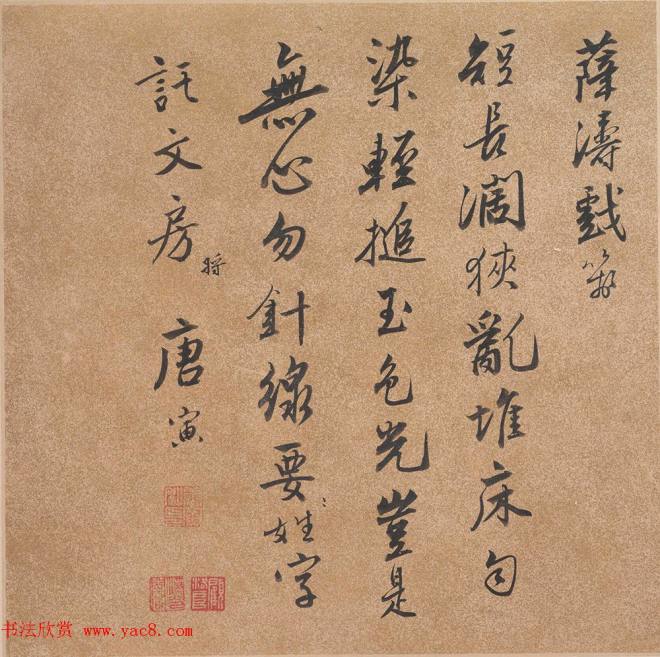 薛濤戲箋
短長濶狹亂堆床勻
染輕搥玉色光豈是
無心勿針線要姓字
託文房 将
唐寅
书法欣赏 www.yac8.com